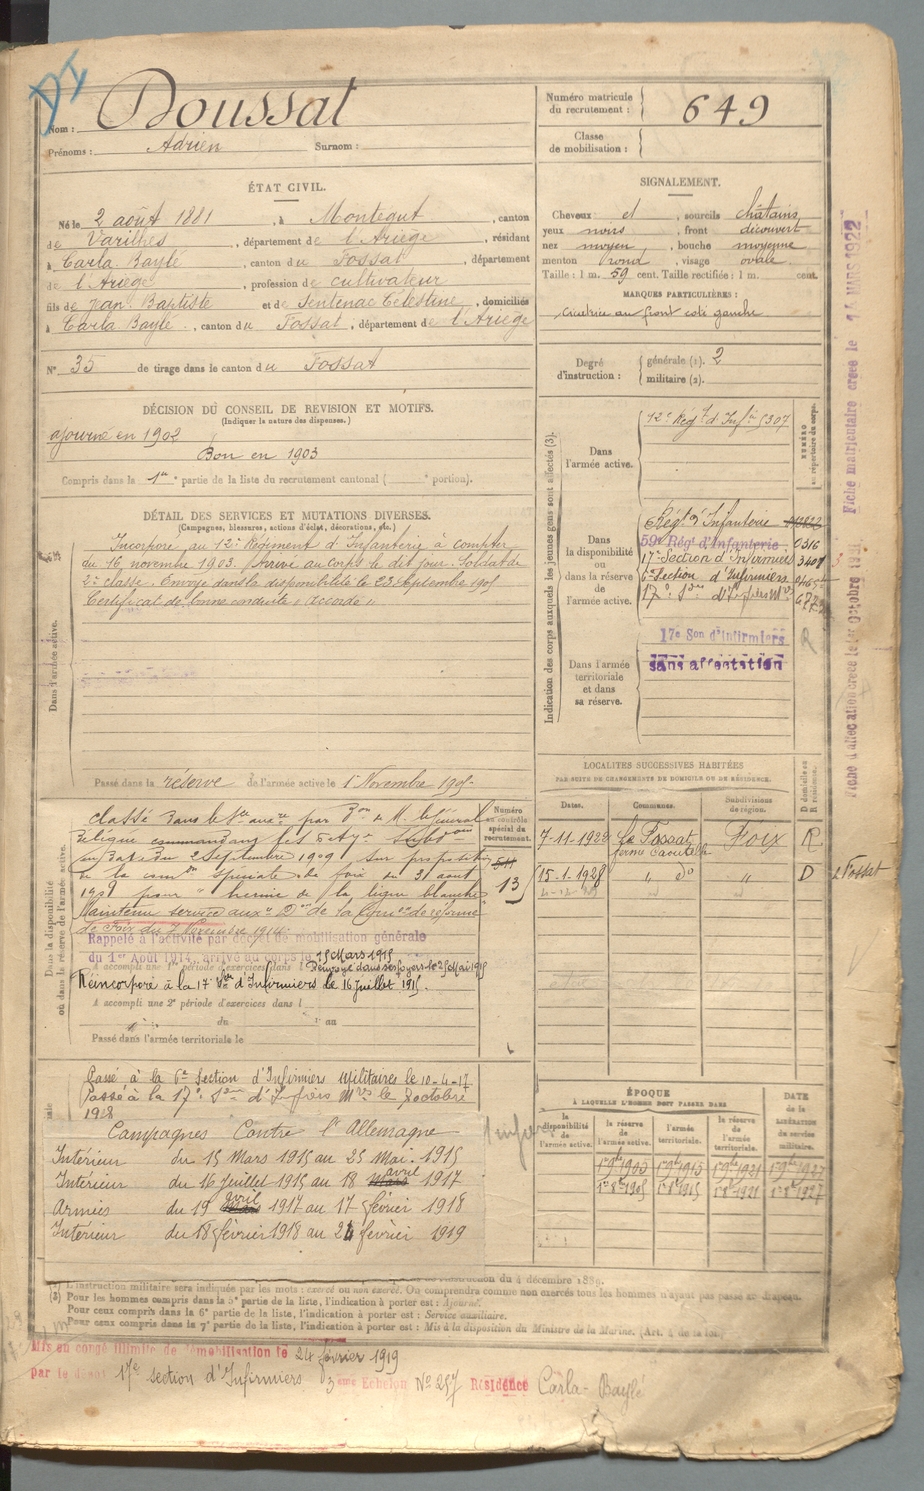 DI
Nom : Doussat
Prénoms : Adrien Surnom :
Numéro matricule du recrutement : 649
Classe de mobilisation :
ÉTAT CIVIL.
Né le 2 août 1881, à Montegut, canton
de Varilhes, département de l'Ariège, résidant
à Carla-Bayle, canton du Fossat, département
de l'Ariège, profession de cultivateur
fils de Jean-Baptiste et de Sentenac Célestine, domiciliés
à Carla-Bayle, canton du Fossat, département de l'Ariège
N° 35 de tirage dans le canton du Fossat
SIGNALEMENT.
Cheveux et, sourcils châtains,
yeux noirs, front découvert
nez moyen, bouche moyenne
menton rond, visage ovale
Taille : 1 m. 59 cent. Taille rectifiée : 1 m. cent.
MARQUES PARTICULIÈRES :
cicatrice au front coté gauche
Degré d'instruction : générale (1). 2
militaire (2).
DÉCISION DU CONSEIL DE REVISION ET MOTIFS.
(Indiquer la nature des dispenses.)
ajourné en 1902
Bon en 1903
Compris dans la 1re partie de la liste du recrutement cantonal ( portion).
DÉTAIL DES SERVICES ET MUTATIONS DIVERSES.
(Campagnes, blessures, actions d'éclat, décorations, etc.)
Dans l'armée active.
Incorporé au 12e Régiment d'Infanterie à compter
du 16 novembre 1903. Arrivé au corps le dit jour. Soldat de
2e classe. Envoyé dans la disponibilité le 23 Septembre 1905
Certificat de bonne conduite "Accordé"
Passé dans la réserve de l'armée active le 1 Novembre 190
Indication des corps auxquels les jeunes gens sont affectés (3).
NUMÉRO au répertoire du corps.
Dans l'armée active.
12e Régt d'Infie 5307
Dans la disponibilité ou dans la réserve de l'armée active.
Régt d'Infanterie
59e Rég' d'Infanterie 0316
17e Section d'Infirmiers 3401
6e Section d'Infirmiers
17e Son d'Infiers Mres
Dans l'armée territoriale et dans sa réserve.
17e Son d'Infirmiers
sans affectation
R
LOCALITÉS SUCCESSIVES HABITÉES
PAR SUITE DE CHANGEMENTS DE DOMICILE OU DE RÉSIDENCE.
Dates. Communes. Subdivisions de région. D domicile ou R résidence.
7-11-1928 Le Fossat Foix R
15-1-1929 " do " D
Le Fossat
Dans la disponibilité ou dans la réserve de l'armée active.
Numéro au contrôle spécial du recrutement.
511
13
Classé dans le Sce auxre par Don de M. le Général
Délégué commandant les
en date du 2 Septembre 1909, sur proposition
de la comon spéciale de foix du 31 aout
1909 pour " hernie de la ligne blanche
Maintenu service auxre Don de la Comon de réforme
de Foix du 7 Novembre 1914.
Rappelé à l'activité par décret de mobilisation générale
du 1er Août 1914, arrivé au corps le 15 Mars 1915
A accompli une 1re période d'exercices dans l Renvoyé dans ses foyers le 25 Mai 1915
Réincorporé à la 17e Son d'Infirmiers le 16 juillet 1915.
A accompli une 2e période d'exercices dans l
du au
Passé dans l'armée territoriale le
Passé à la 6e Section d'Infirmiers Militaires le 10-4-17
Passé à la 17e Son d'Infiers Mres le 7 octobre
1918
Campagnes Contre l'Allemagne
Intérieur du 15 Mars 1915 au 25 Mai 1915
Intérieur du 16 Juillet 1915 au 18 Mars avril 1917
Armées du 19 Mars avril 1917 au 17 février 1918
Intérieur du 18 février 1918 au 24 février 1919
ÉPOQUE
À LAQUELLE L'HOMME DOIT PASSER DANS
la disponibilité de l'armée active.
la réserve de l'armée active.
l'armée territoriale.
la réserve de l'armée territoriale.
DATE de la LIBÉRATION du service militaire.
1 9bre 1905 1 9bre 1915 1 9bre 1921 1 9bre 1927
1er 8bre 1905 1er 8 1915 1 8 1921 1er 8 1927
du 4 décembre 1889.
L'instruction militaire sera indiquée par les mots : exercé ou non exercé. On comprendra comme non exercés tous les hommes n'ayant pas passé au drapeau.
(3) Pour les hommes compris dans la 5e partie de la liste, l'indication à porter est : Ajourné.
Pour ceux compris dans la 6e partie de la liste, l'indication à porter est : Service auxiliaire.
Pour ceux compris dans la 7e partie de la liste, l'indication à porter est : Mis à la disposition du Ministre de la Marine. (Art. 4 de la loi.)
Mis en congé illimité de démobilisation le 24 février 1919
par le dépôt 17e section d'Infirmiers 3ème Echelon No 257 Résidence Carla-Baylé
Fiche matriculaire créée le 14 MARS 1922
Fiche d'affectation créée le 1er Octobre